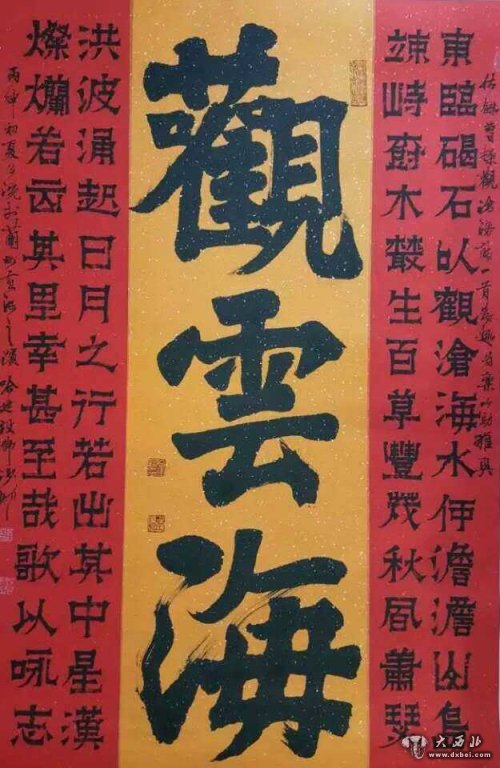 東臨碣石以觀滄海水何澹澹山島
竦峙樹木叢生百草豐茂秋風蕭瑟
觀雲海
洪波涌起日月之行若出其中星漢
燦爛若出其里幸甚至哉歌以詠志
丙申初夏
大西北
www.dxbei.com